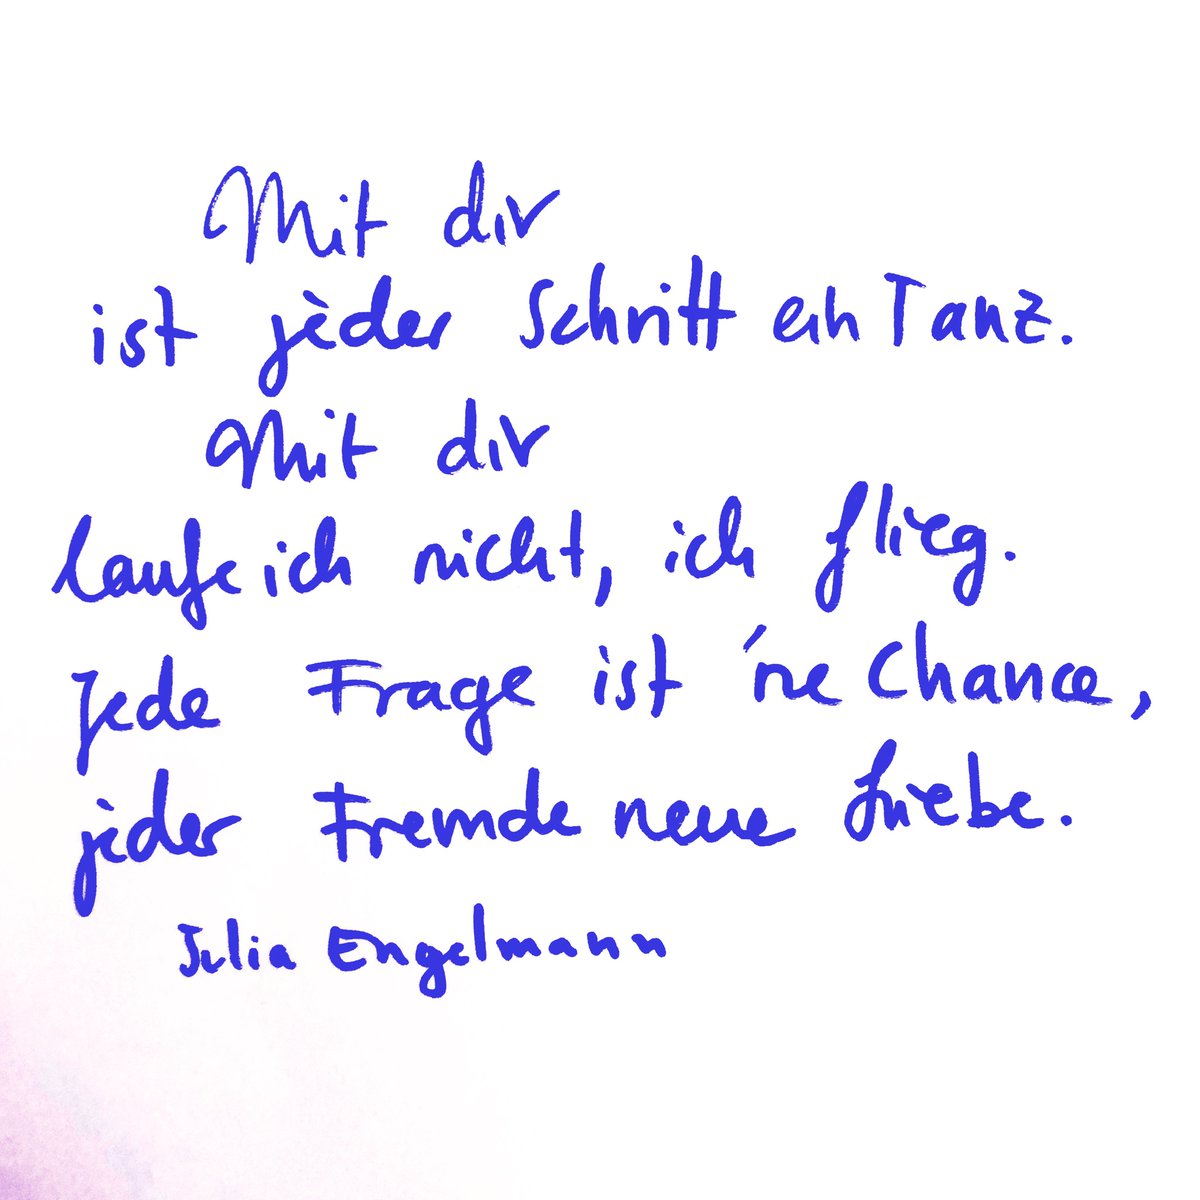 Mit dir
ist jeder Schritt ein Tanz.
Mit dir
laufe ich nicht, ich flieg.
Jede Frage ist 'ne Chance,
jeder Fremde neue Liebe.
Julia Engelmann